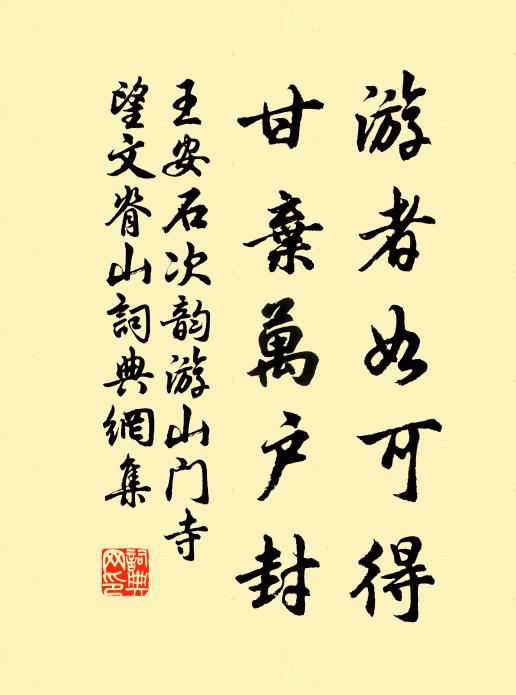 游者如可得
甘棄萬户封
王安石次韵游山门寺
望文脊山詞典網集
詞典网印